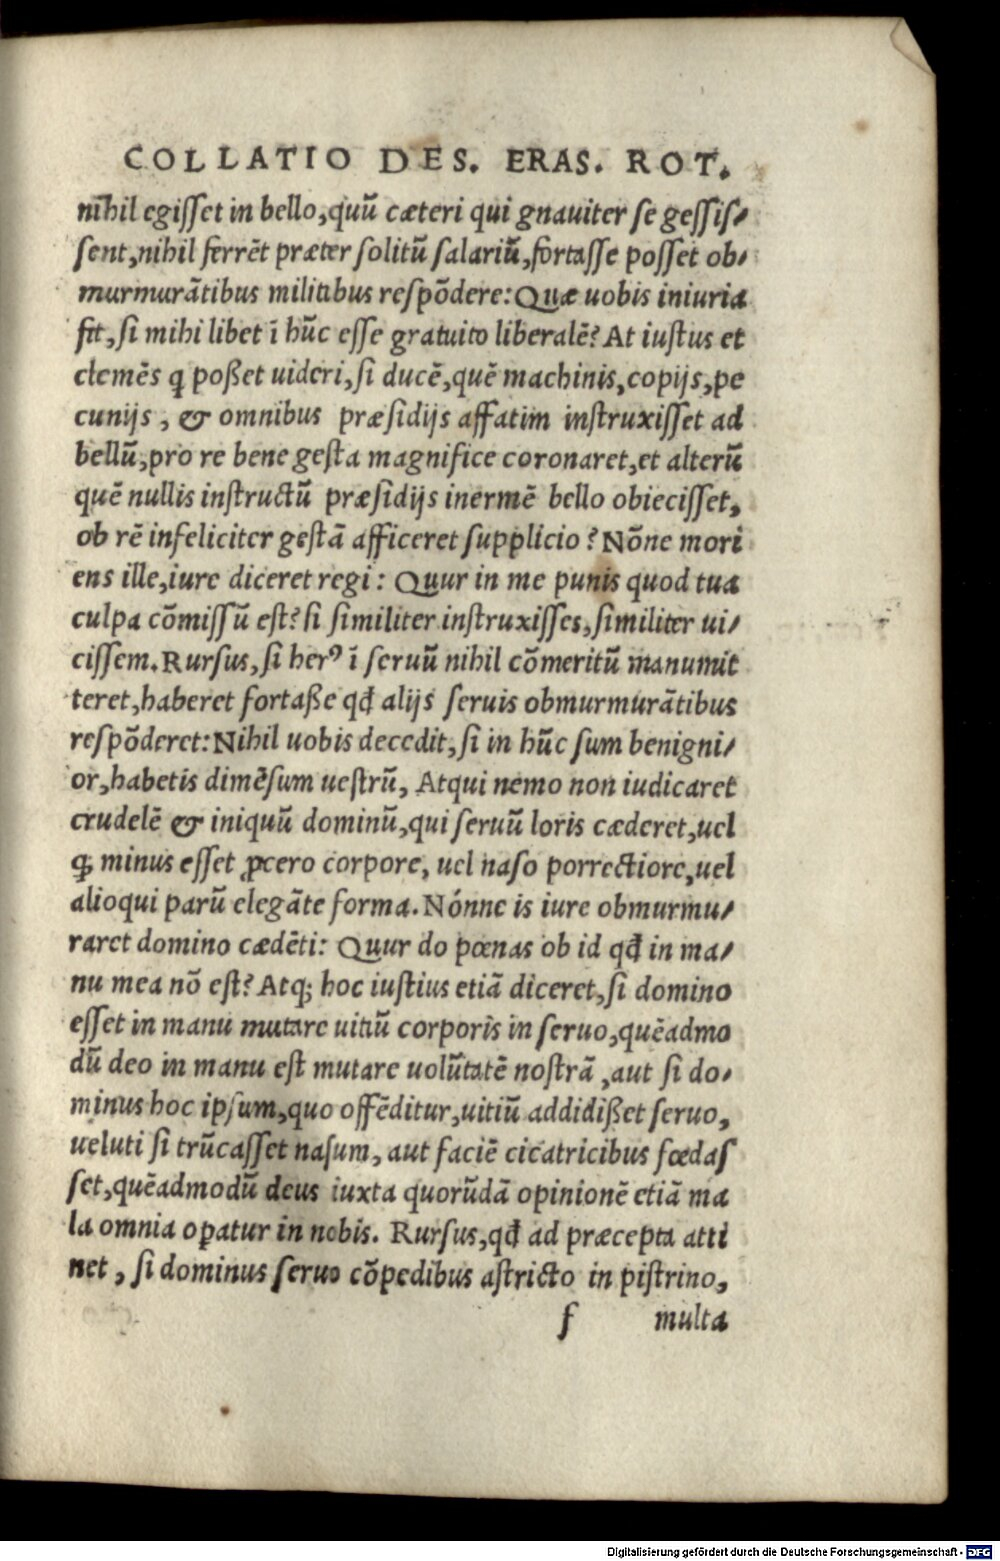 COLLATIO DES. ERAS. ROT.
nihil egisset in bello,quũ cæteri qui gnauiter se gessis/
sent,nihil ferrēt præter solitũ salariũ,fortasse posset ob/
murmurātibus militibus respōdere:Quæ uobis iniuria
fit,si mihi libet ī hũc esse gratuito liberalē?At iustus et
clemēs ꝗ poßet uideri,si ducē,quē machinis,copijs,pe
cunijs, & omnibus præsidijs affatim instruxisset ad
bellũ,pro re bene gesta magnifice coronaret,et alterũ
quē nullis instructũ præsidijs inermē bello obiecisset,
ob rē infeliciter gestā afficeret supplicio?Nōne mori
ens ille,iure diceret regi: Quur in me punis quod tua
culpa cōmissũ est?si similiter instruxisses,similiter ui/
cissem.Rursus,si herꝰ ī seruũ nihil cōmeritũ manumit
teret,haberet fortaße qđ alijs seruis obmurmurātibus
respōderet:Nihil uobis decedit,si in hũc sum benigni/
or,habetis dimēsum uestrũ, Atqui nemo non iudicaret
crudelē & iniquũ dominũ,qui seruũ loris cæderet,uel
ꝙ minus esset ꝓcero corpore, uel naso porrectiore,uel
alioqui parũ elegāte forma.Nónne is iure obmurmu/
raret domino cædēti: Quur do pœnas ob id qđ in ma/
nu mea nō est?Atq; hoc iustius etiā diceret,si domino
esset in manu mutare uitiũ corporis in seruo,quēadmo
dũ deo in manu est mutare uolũtatē nostrā,aut si do/
minus hoc ipsum,quo offēditur,uitiũ addidißet seruo,
ueluti si trũcasset nasum, aut faciē cicatricibus fœdas
set,quēadmodũ deus iuxta quorũdā opinionē etiā ma
la omnia oꝑatur in nobis. Rursus,qđ ad præcepta atti
net, si dominus seruo cōpedibus astricto in pistrino,
f multa
Digitalisierung gefördert durch die Deutsche Forschungsgemeinschaft - DFG